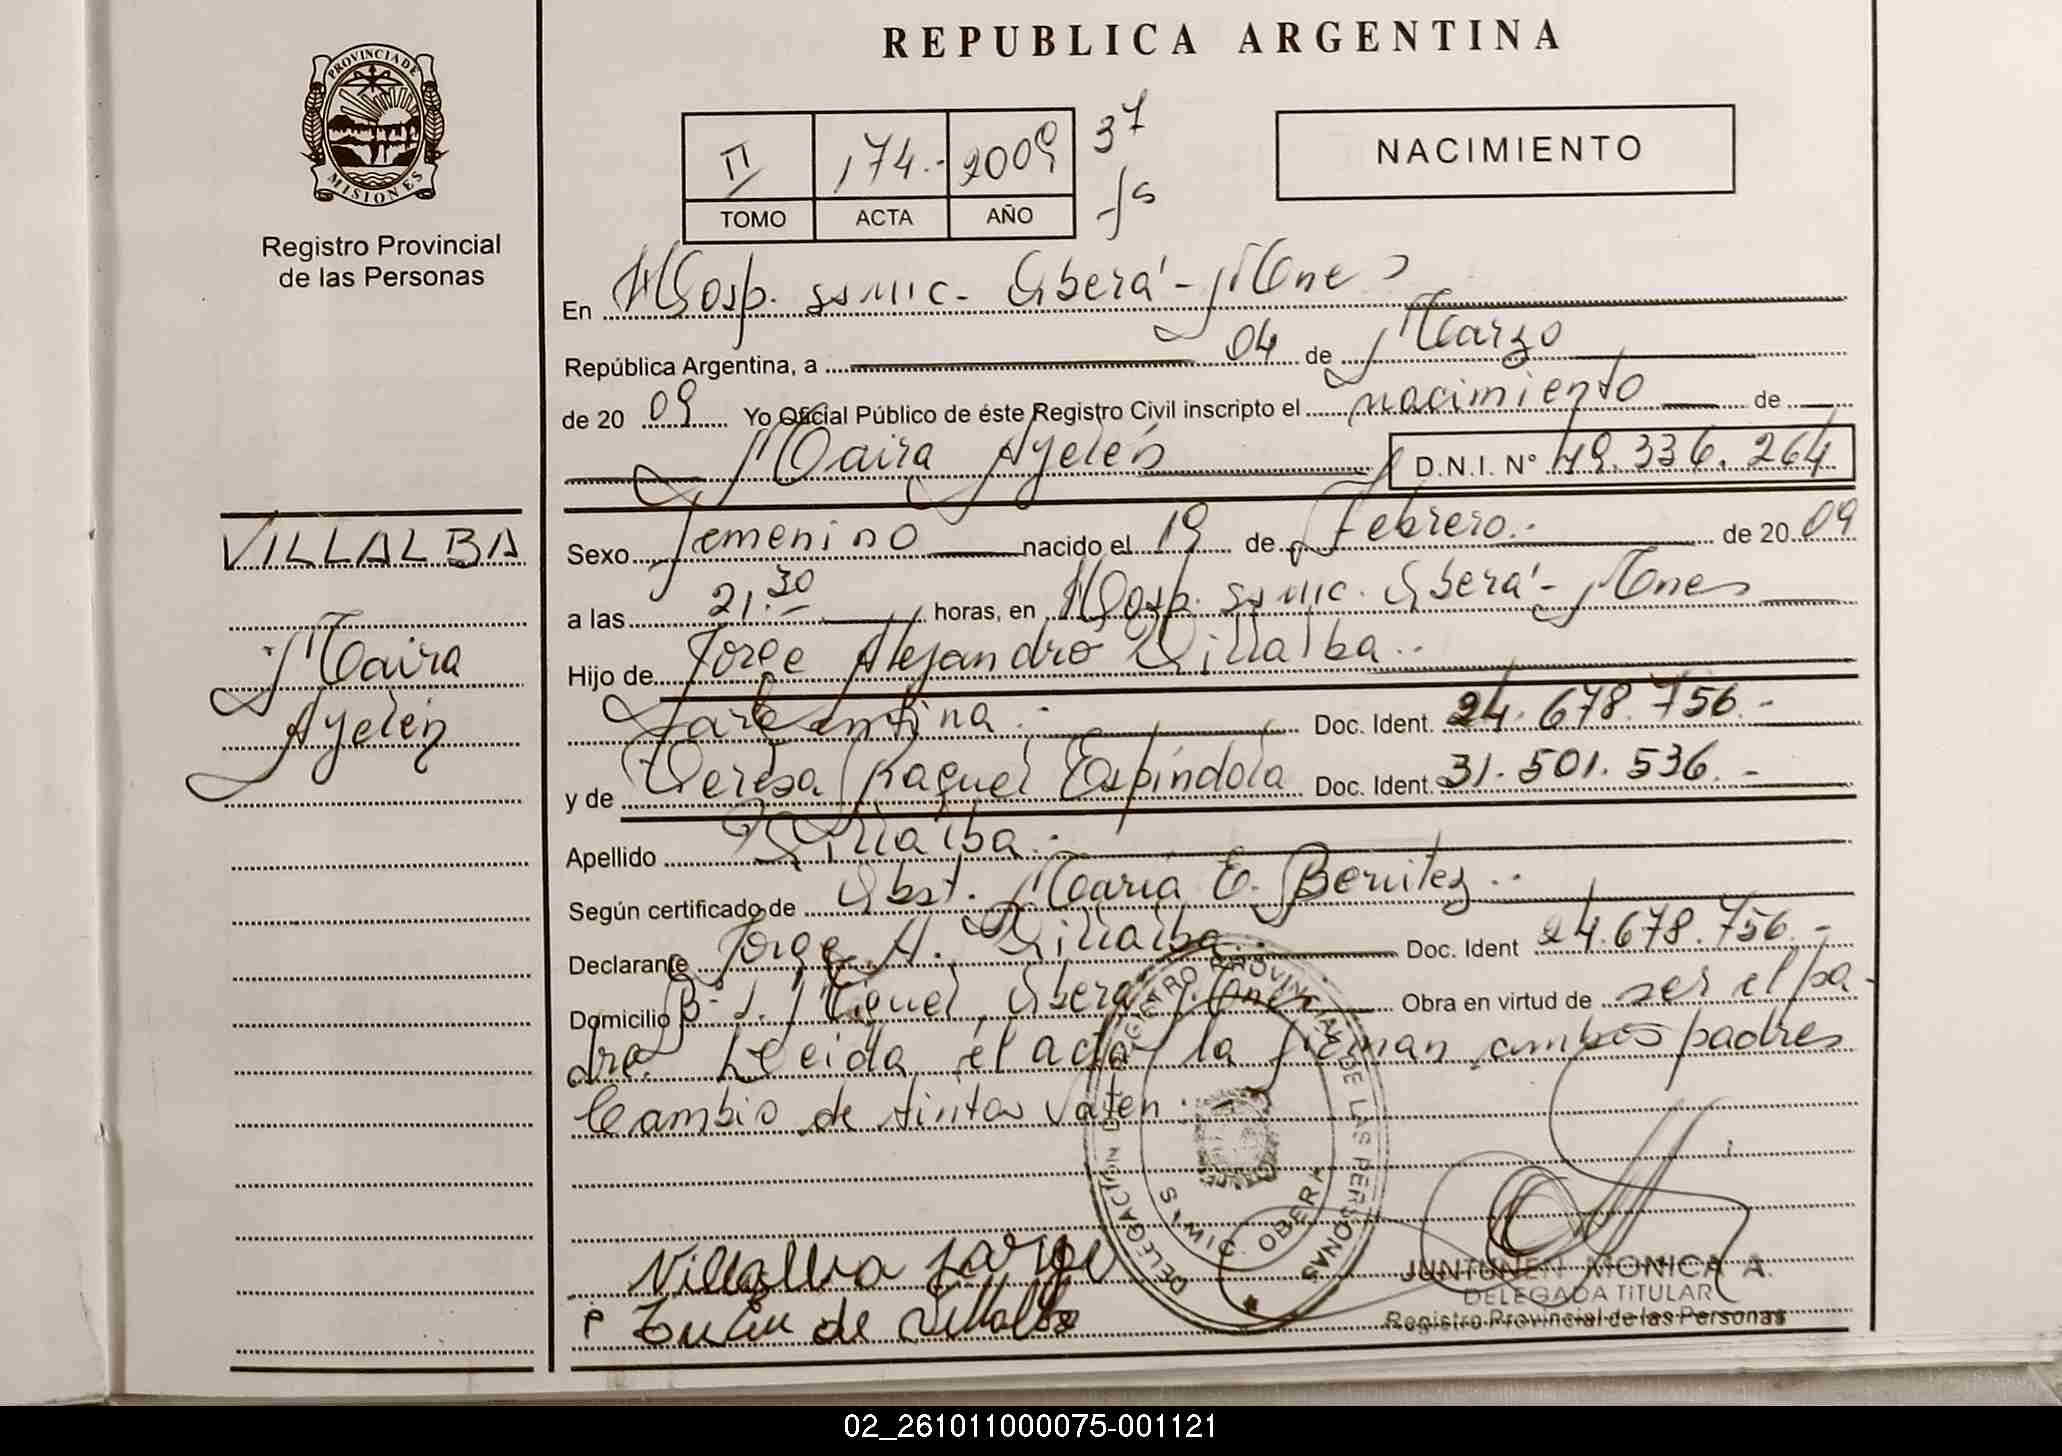 PROVINCIA DE
MISIONES
Registro Provincial
de las Personas
REPUBLICA ARGENTINA
II 174.- 2009 37
TOMO ACTA AÑO
NACIMIENTO
En Hosp. SSMIC. Oberá - Mnes
República Argentina, a 04 de Marzo
de 20 09 Yo Oficial Público de éste Registro Civil inscripto el nacimiento de
Maira Ayelén D.N.I. N° 49.336.264
Sexo femenino nacido el 19 de Febrero.- de 20 09
a las 21.30 horas, en Hosp. SSMIC. Oberá - Mnes
Hijo de Jorge Alejandro Villalba.-
argentina.- Doc. Ident. 24.678.756.-
y de Teresa Raquel Espíndola Doc. Ident. 31.501.536.-
Apellido Villalba.-
Según certificado de Obst. María E. Benitez.-
Declarante Jorge A. Villalba.- Doc. Ident 24.678.756.-
Domicilio Miguel, Oberá, Mnes Obra en virtud de ser el pa-
dre. Leída el acta la firman ambos padres
Cambio de tintas valen.-
Villalba Jorge
de Villalba
VILLALBA
Maira
Ayelén
REGISTRO PROVINCIAL DE LAS PERSONAS
DELEGACION
OBERA
JUNTUNEN MONICA A.
DELEGADA TITULAR
Registro Provincial de las Personas
02_261011000075-001121